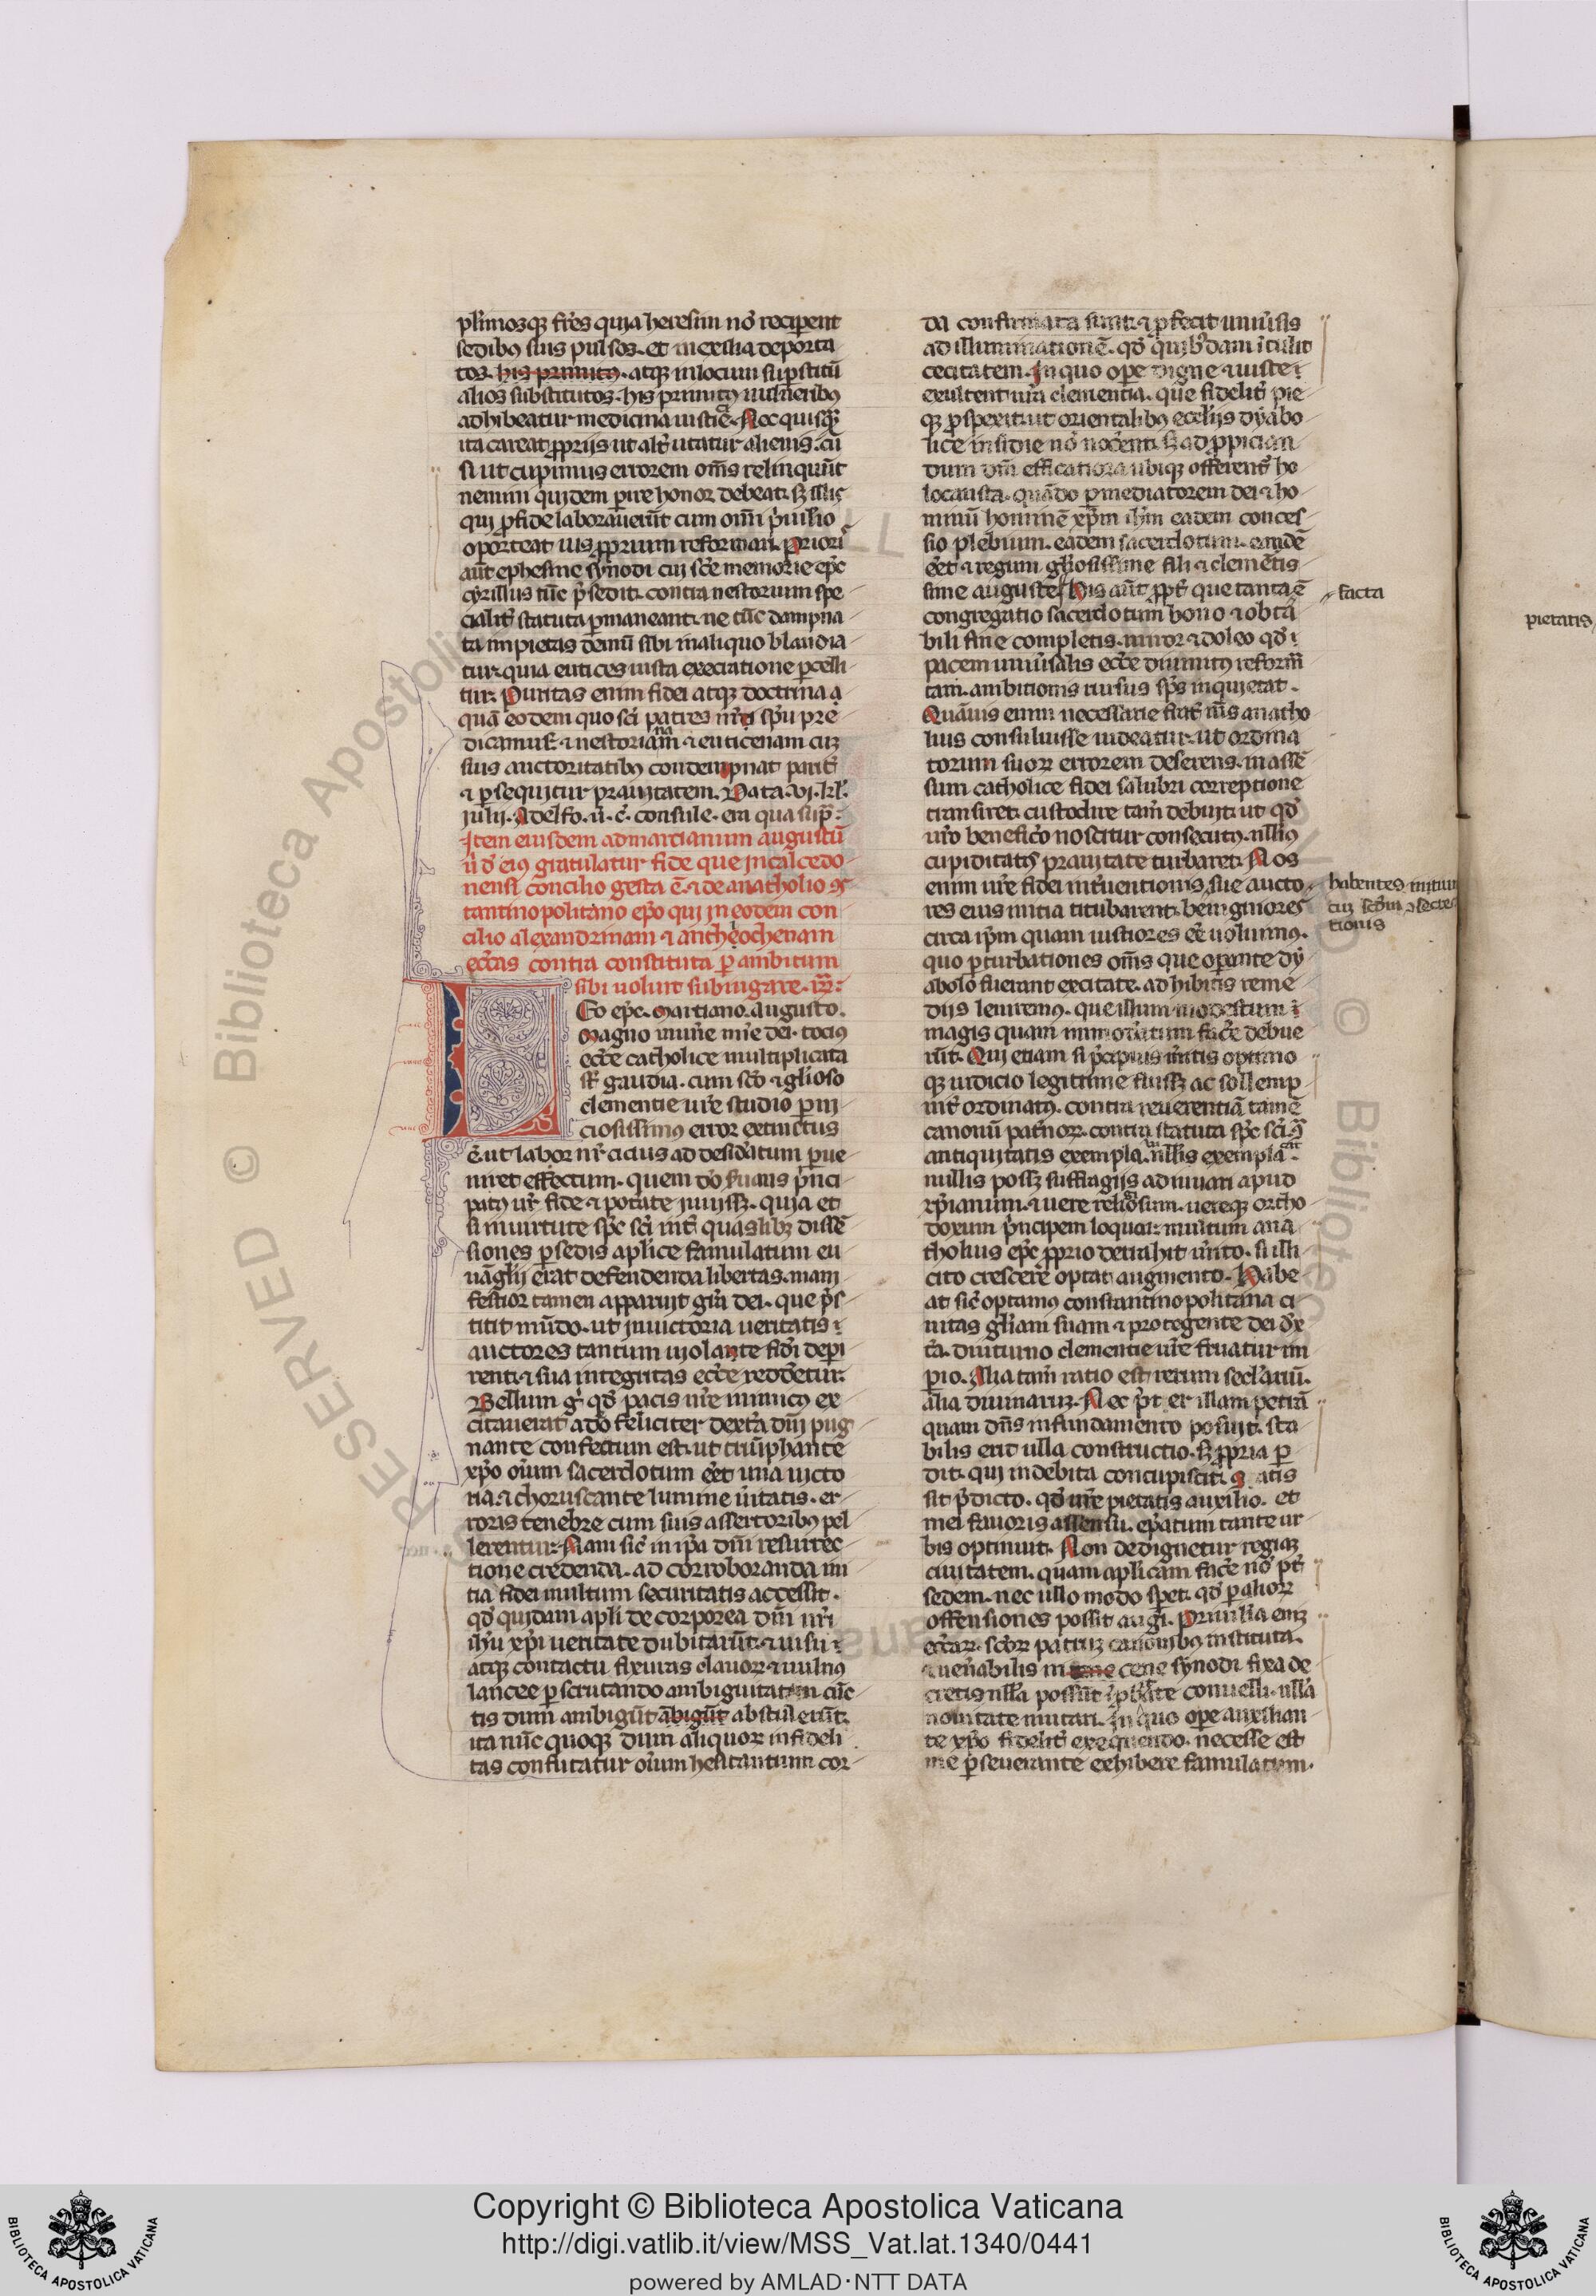 plimosq̃ fr̃es quia heresim nõ recipent
sedibꝰ suis pulsos. et in exilia deporta
tos. his primitꝰ. atq̃ in locum sup̃stitũ
alios substitutos. his primitꝰ uulneribꝰ
adhibeatur medicina iusticie. Nec quisq̃
ita careat ꝓprijs ut alt̃ utatur alienis. cũ
si ut cupimus errorem om̃s relinquũt
nemini quidem perire honor debeat. sꝫ illis
qui ꝓ fide laborauerũt cum om̃i p̃uilio
oporteat ius ꝓprium reformari. Priori
aũt ephesine synodi cui sc̃e memorie ep̃c
cyrillus tũc p̃sedit. contra nestorium spe
cialit̃ statuta ꝑmaneant. ne tũc dampna
ta impietas demũ sibi in aliquo blandia
tur. quia eutices iusta execratione ꝑcelli
tur. Puritas enim fidei atq̃ doctrina a
quã eodem quo sc̃i patres nr̃i sp̃u pre
dicamus. ⁊ nestorianam ⁊ euticenam cuꝫ
suis auctoritatibꝰ condempnat parit̃
⁊ ꝑsequitur prauitatem. Data. vj. kl̃.
julij. Adelfo. ũ. c̃. consule. era qua sup̃.
Item eiusdem ad marcianum augustũ
ũ d̃ eiꝰ gratulatur fide que in calcedo
nensi concilio gesta ẽ. ⁊ de anatholio ꝯs
tantinopolitano ep̃o qui in eodem con
cilio alexandrinam ⁊ antheochenam
ecc̃as contra constituta ꝑ ambitum
sibi uoluit subiugare.
Eo ep̃c. Martiano. augusto.
Magno mune mĩe dei. tociꝰ
ecc̃e catholice multiplicata
st̃ gaudia. cum sc̃o ⁊ glioso
clementie ur̃e studio ꝑni
ciosissimꝰ error extinctus
ẽ. ut labor nr̃ cicius ad desid̃atum ꝑue
niret effectum. quem dõ suaus p̃nci
patꝰ ur̃ fide ⁊ potate juuisꝫ. quia et
si in uirtute sp̃c sc̃i int̃ quaslibꝫ dissẽ
siones ꝑ sedis aplice famulatum eu
uãglij erat defendenda libertas. mani
festior tamen apparuit gr̃a dei. que p̃s
titit mũdo. ut in uictoria ueritatis ⁊
auctores tantum uiolante fidei depi
rent. ⁊ sua integritas ecc̃e redderetur.
Bellum g̃ qd̃ pacis nr̃e inimicꝰ ex
citauerat adõ feliciter dextera dñi pug
nante confectum est. ut triũphante
xp̃o oĩum sacerdotum eẽt una uicto
ria. ⁊ choruscante lumine ũitatis. er
roris tenebre cum suis assertoribꝰ pel
lerentur. Nam sic̃ in ip̃a dñi resurrec
tione credenda. ad corroboranda ini
tia fidei multum securitatis accessit.
qd̃ quidam apl̃i de corporea dñi nr̃i
ihũ xp̃i ueritate dubitarũt. ⁊ uisu ⁊
atq̃ contactu fixuras clauoꝝ ⁊ uulnꝰ
lancee ꝑscrutando ambiguitatem cũc
tis dum ambigũt abigũt abstulerũt.
ita nũc quoq̃ dum aliquoꝝ infideli
tas confutatur oĩum hesitantium cor
da confirmata sunt. ⁊ ꝓfecit uniũsis
ad illuminationẽ. qd̃ quibꝰdam ĩtulit
cecitatem. In quo ope digne ⁊ iuste ⁊
exultent ur̃a clementia. que fidelit̃ pie
q̃ ꝓspexit. ut orientalibꝰ ecclijs dyabo
lice insidie nõ nocẽrent. sꝫ ad ꝓpician
dum dm̃ efficatiora ubiq̃ offerent̃ ho
locausta. quãdo ꝑ mediatorem dei ⁊ ho
minũ hominẽ xp̃m ihm̃ eadem conces
sio plebium. eadem sacerdotum. eandẽ
eẽt ⁊ regum gliosissime fili ⁊ clemẽtis
sime auguste. His aũt ꝓpt̃ que tanta ẽ
facta
congregatio sacerdotum bono ⁊ obtã
bili fine completis. miror ⁊ doleo qd̃ ⁊
pacem uniũsalis ecc̃e diuinitꝰ reform̃
tam. ambitionis rursus sp̃s inquietat.
Quãuis enim necessarie frat̃ m̃s anatho
lius consuluisse uideatur. ut ordina
torum suoꝝ errorem deserens. in assẽ
sum catholice fidei salubri correptione
transiret. custodire tam̃ debuit. ut qd̃
ur̃o benefic̃o noscitur consecutꝰ. nulliꝰ
cupiditatis prauitate turbaret. Nos
enim ur̃e fidei int̃uentionis sue aucto
habentes intuitu
res eius initia titubarent. benigniores
cuꝫ
tionis
circa ip̃m quam iustiores eẽ uoluimꝰ.
quo ꝑturbationes om̃s que operante dy
abolo fuerant excitate. adhibitis reme
dijs leniremꝰ. que illum modestum ⁊
magis quam immoderatum fac̃e debue
rũt. Qui etiam si p̃cipuis m̃itis optimo
q̃ iudicio legitime fuisꝫ ac sollemp
nit̃ ordinatꝰ. contra reuerentiã tamẽ
canonũ patñoꝝ. contra statuta sp̃c sc̃i.
antiquitatis exempla. nullis exempla
nullis possꝫ suffragijs adiuuari apud
xp̃ianum. ⁊ uere religiosum. uereq̃ ortho
doxum p̃ncipem loquar. multum ana
tholius ep̃c ꝓprio detrahit m̃ito. si illi
cito crescere optat augmento. Habe
at sic̃ optamꝰ constantinopolitana ci
uitas gliam suam ⁊ protegente dei dex
t̃a. diuturno clementie ur̃e fruatur im
perio. Alia tam̃ ratio est rerum seclariũ.
alia diuinaruꝫ. Nec p̃t er illam petrã
quam dñs in fundamento posuit. sta
bilis erit ulla constructio. sꝫ ꝓpria ꝑ
dit. qui indebita concupiscit. atis
sit p̃dicto. qd̃ ur̃e pietatis auxilio. et
mei fauoris assensu. ep̃atum tante ur
bis optinuit. Non dedignetur regiaꝫ
ciuitatem. quam aplicam fac̃e nõ pt̃
sedem. nec ullo modo speret. qd̃ ꝑ alioꝝ
offensiones possit augi. Priuilia eniꝫ
ecc̃aꝝ. sc̃oꝝ patruꝫ canonibꝰ instituta.
⁊ uen̄abilis ni cene synodi fixa de
cretis nulla possũt ĩprobitate conuelli. nulla
nouitate mutari. In quo ope auxilian
te xp̃o fidelit̃ exequendo. necesse est
me ꝑseuerante exhibere famulatum.
pietatis
RESERVED © Biblioteca Apostolica
Copyright © Biblioteca Apostolica Vaticana
http://digi.vatlib.it/view/MSS_Vat.lat.1340/0441
powered by AMLAD·NTT DATA
BIBLIOTECA APOSTOLICA VATICANA
BIBLIOTECA APOSTOLICA VATICANA